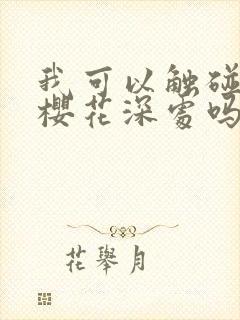 我可以触碰
樱花深处吗
花舉月